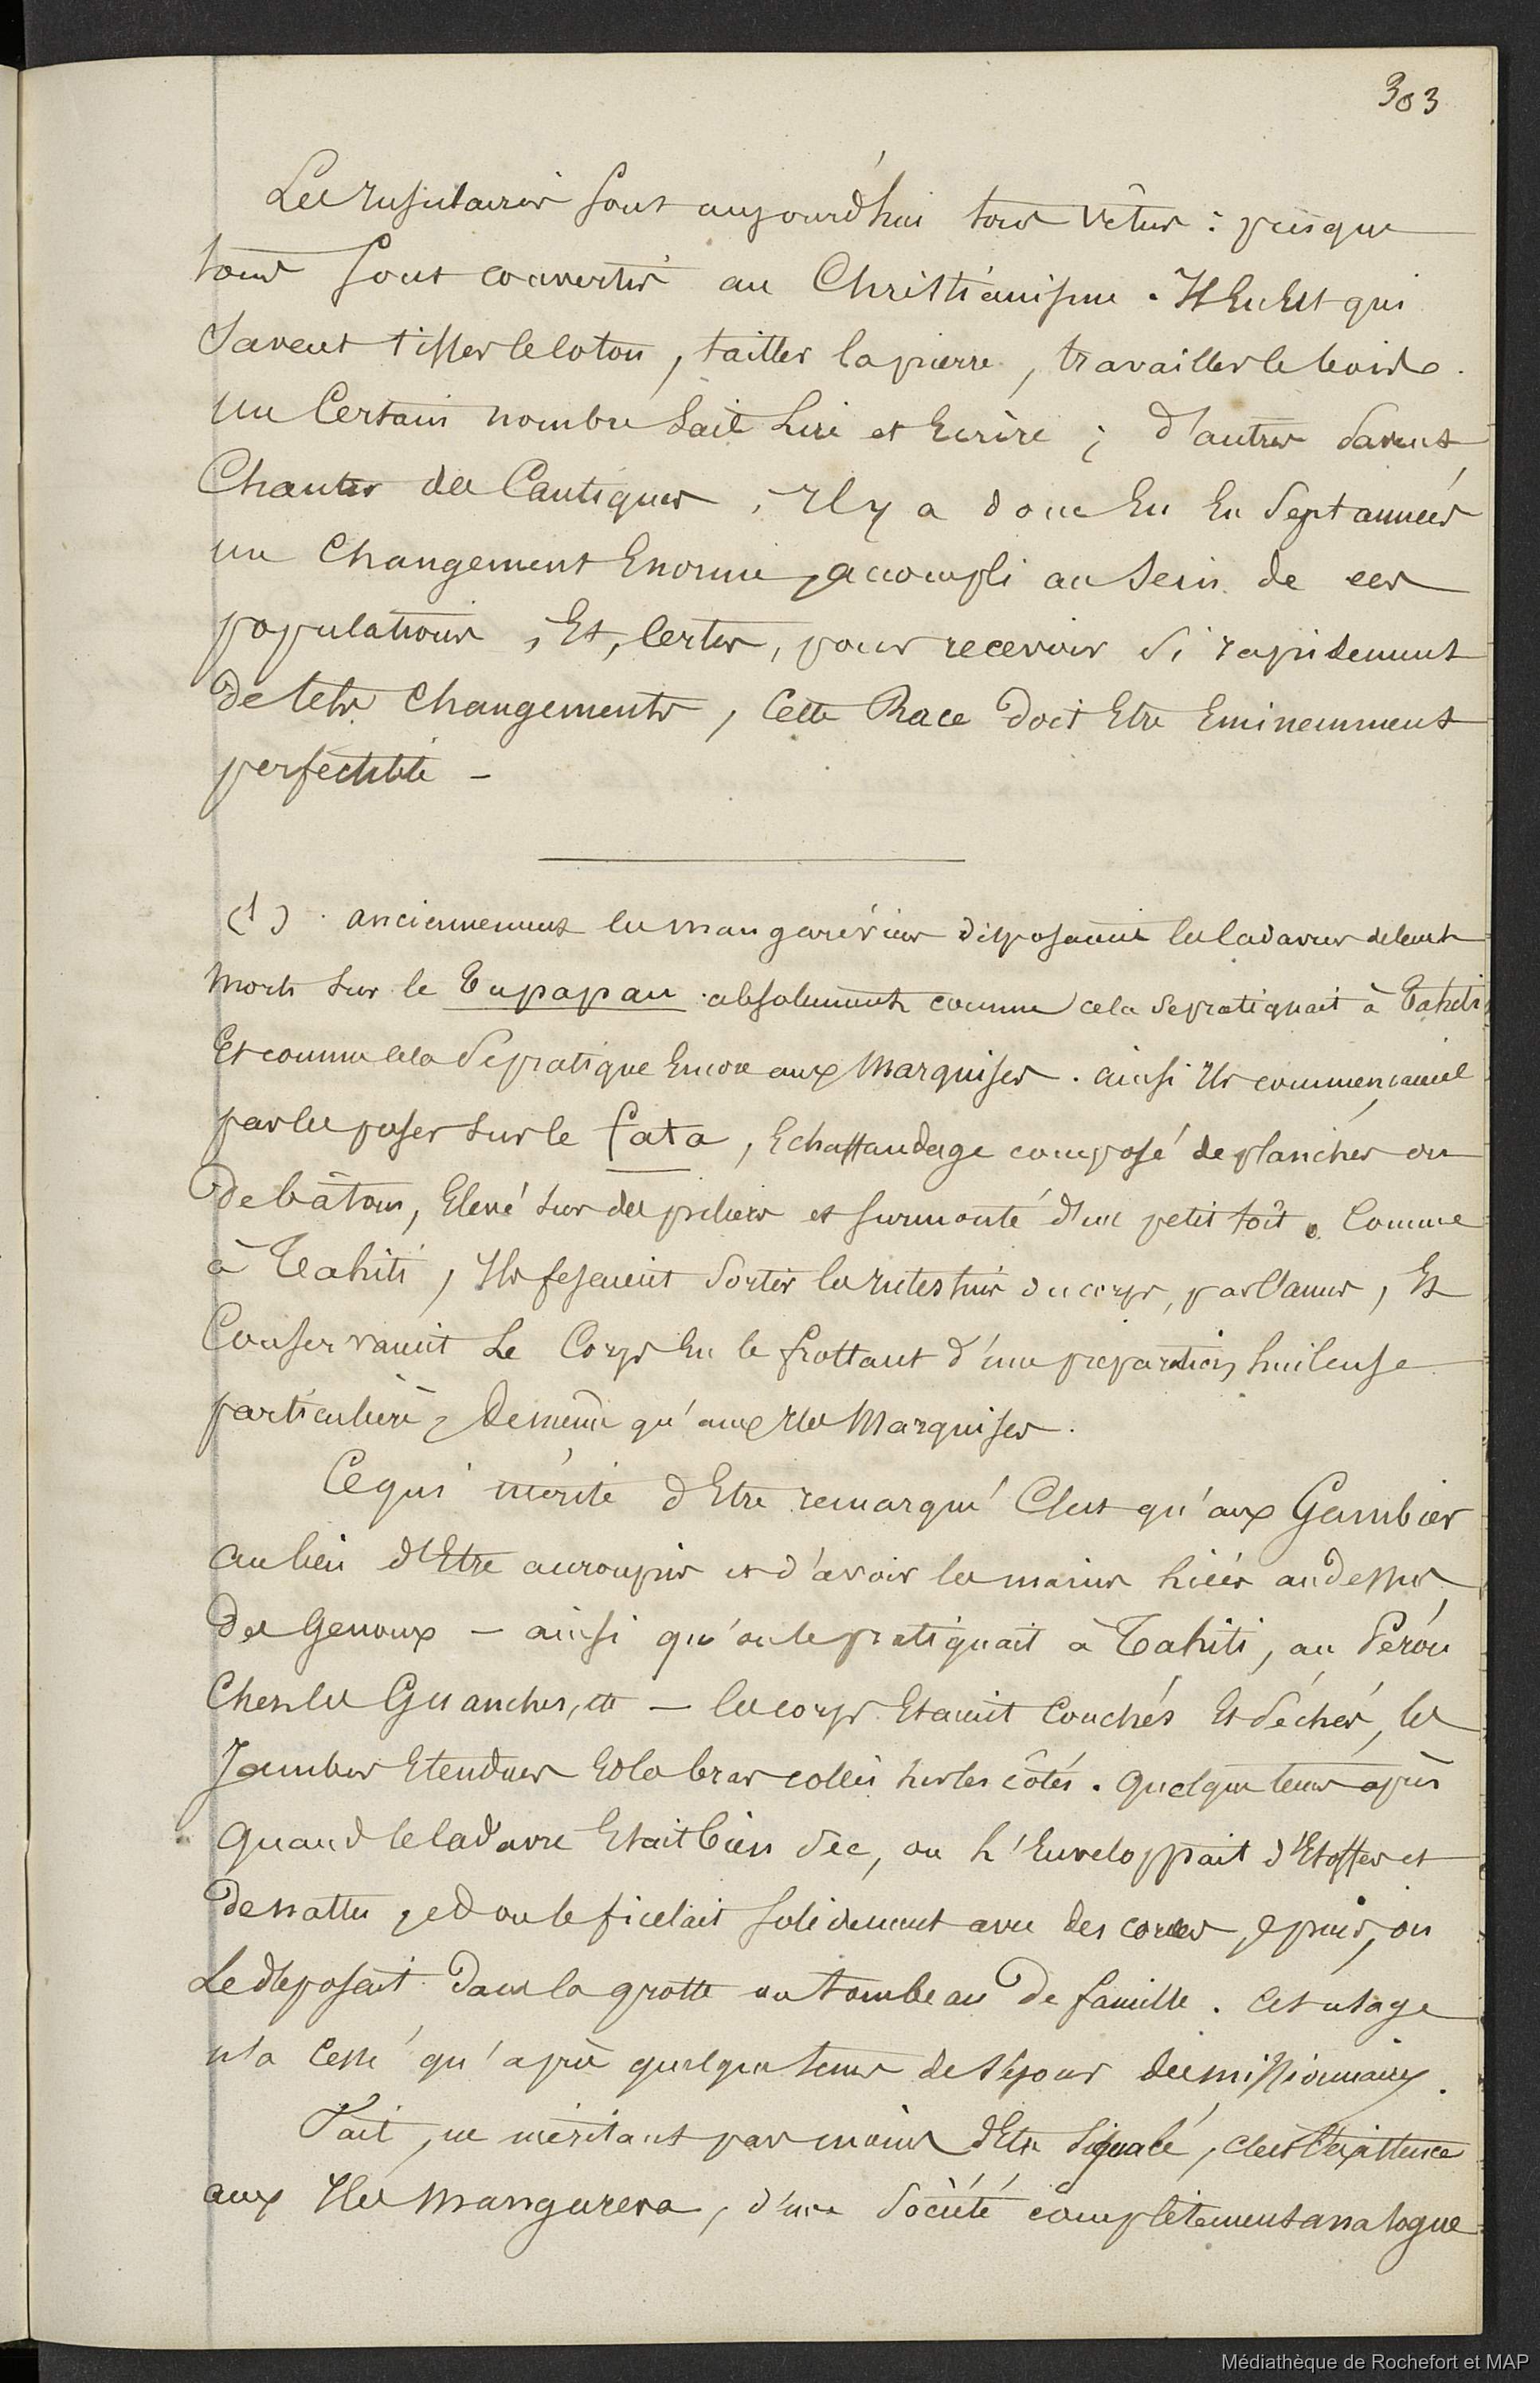 303
Les Insulaires sont aujourd'hui tous vêtus : puisque
tous sont convertis au Christianisme. Il En Est qui
Savent tisser le Coton, tailler la pierre, travailler le bois.
Un Certain nombre Sait Lire et Ecrire ; d'autres Savent
Chanter des Cantiques, Il y a donc Eu En Sept années
un Changement Enorme, accompli au Sein de ces
populations, Et, Certes, pour recevoir Si rapidement
de tels Changements, Cette Race doit Etre Eminemment
perfectible -
(1). anciennement les mangaréviens disposaient les Cadavres de leurs
Morts Sur le Tupapau absolument comme cela Se pratiquait à Tahiti
Et comme cela Se pratique Encore aux Marquises. ainsi Ils commençaient
par les poser Sur le fata, Echaffaudage composé de planches ou
De bâtons, Elevé Sur des piliers et Surmonté d'un petit toît. Comme
à Tahiti, Ils fesaient Sortir les Intestins du corps, par l'anus, Et
Conservaient Le Corps En le frottant d'une préparation huileuse
particulière, De même qu'aux Iles Marquises.
Ce qui mérite d'Etre remarqué C'est qu'aux Gambier
au lieu d'Etre accroupis et d'avoir les mains liées au dessus
Des Genoux - ainsi qu'on le pratiquait à Tahiti, au Pérou
Chez les Guanches, etc - les corps Etaient Couchés Et Séchés, les
Jambes Etendues Et les bras collés sur les côtés. Quelque tems après
Quand le Cadavre Etait bien Sec, on L'Enveloppait d'Etoffes et
De nattes, et on le ficelait Solidement avec des cordes, puis, on
Le déposait dans la grotte ou tombeau De famille. Cet usage
n'a Cessé qu'après quelque tems de Séjour des missionnaires.
Fait, ne méritant pas moins d'Etre Signalé, c'est l'existence
aux Iles Mangareva, d'une Société complètement analogue
Médiathèque de Rochefort et MAP